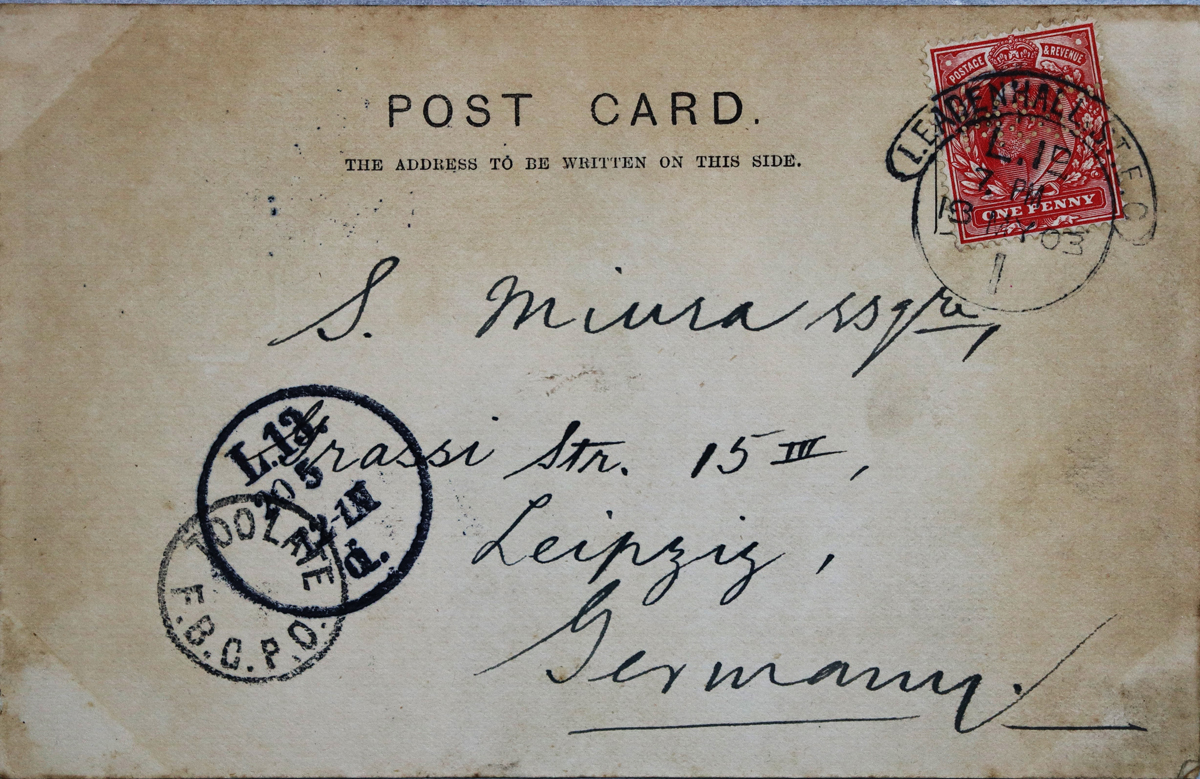 POST CARD.
THE ADDRESS TO BE WRITTEN ON THIS SIDE.
POSTAGE & REVENUE
ONE PENNY
LEADENHALL ST. E.C.
7 PM
18 MY 03
1
S. Miura Esqre,
Grassi Str. 15 III,
Leipzig,
Germany.
L.13.
20 5
12-1N
d.
TOO LATE
F.B.G.P.O.